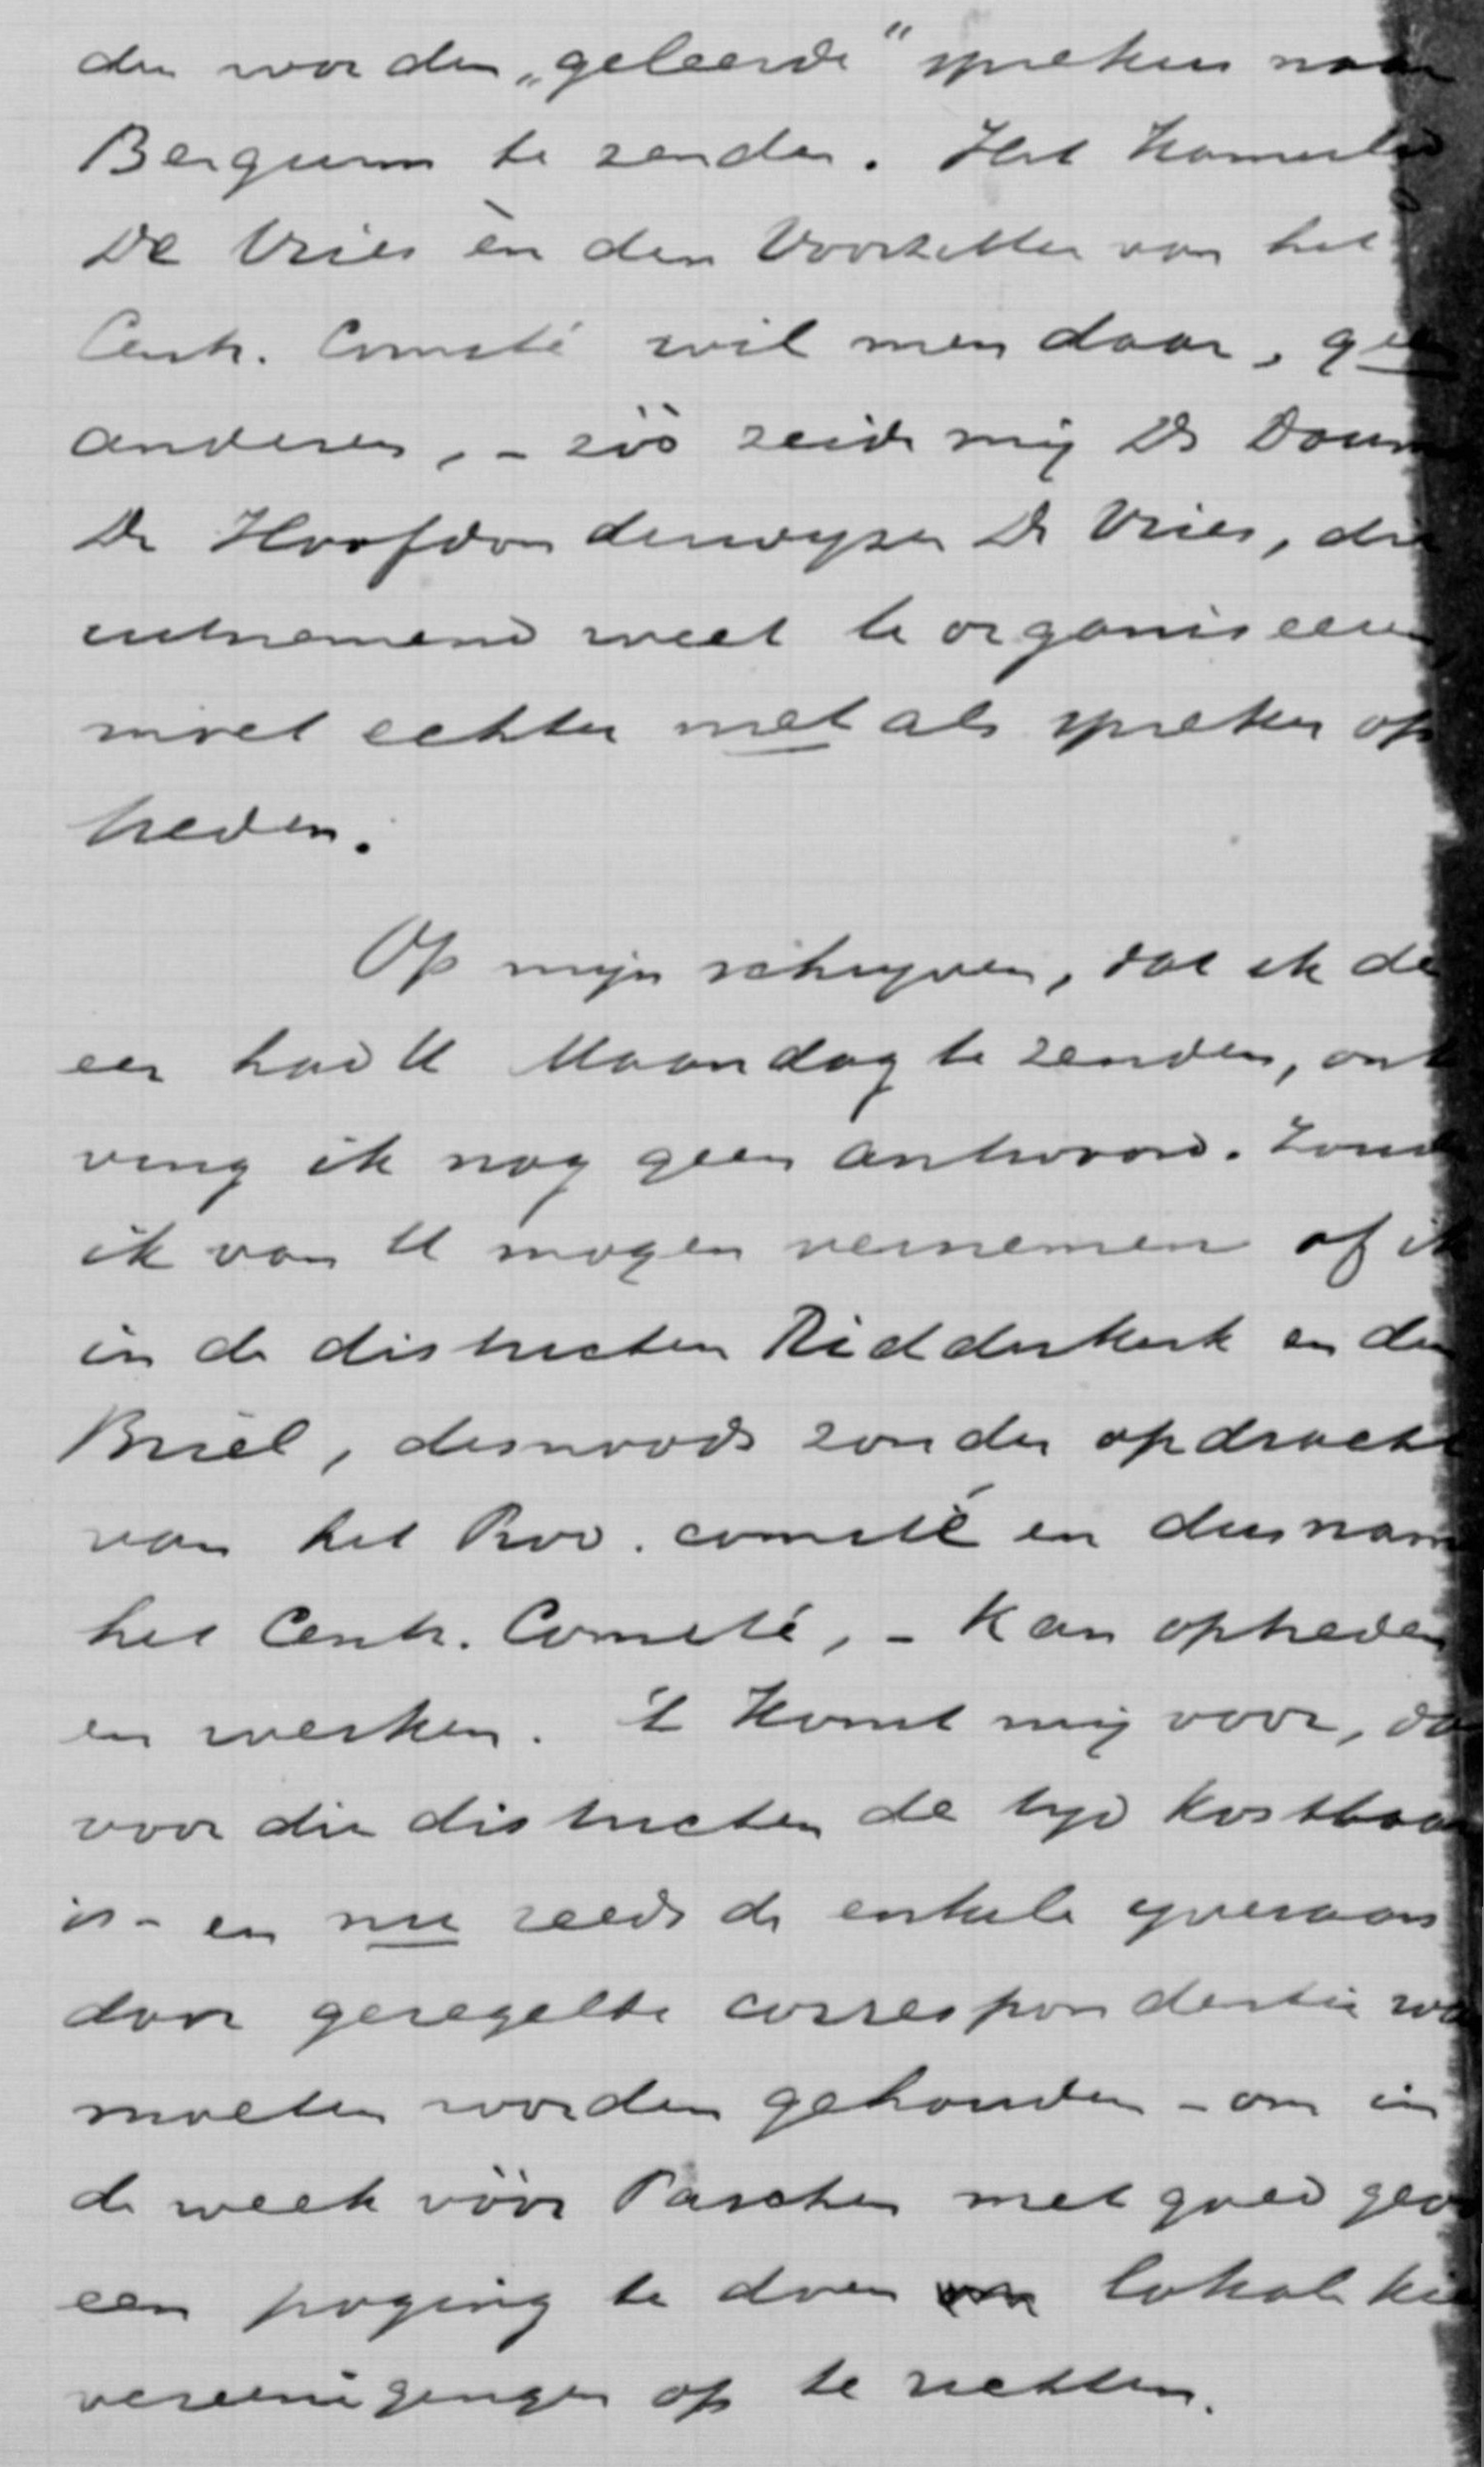 den worden „geleerde" sprekers naar
Bergum te zenden. Het Kamerlid
De Vries èn den Voorzitter van het
Centr. Comité wil men daar, geen
anderen, - zóó zeide mij Ds Douma
De Hoofdonderwyzer De Vries, die
uitnemend weet te organiseeren,
moet echter niet als spreker op
treden.
Op mijn schryven, dat ik de
eer had U Maandag te zenden, ont
ving ik nog geen antwoord. Zoude
ik van U mogen vernemen of ik
in de districten Ridderkerk en den
Briel, desnoods zonder opdracht
van het Prov. comité en dus namens
het Centr. Comité, - kan optreden
en werken. 't Komt mij voor, dat
voor die districten de tyd kostbaar
is - en nu reeds de enkele yveraars
door geregelde correspondentie
moeten worden gehouden - om in
de week vóór Paschen met goed
een poging te doen lokale
vereenigingen op te richten.